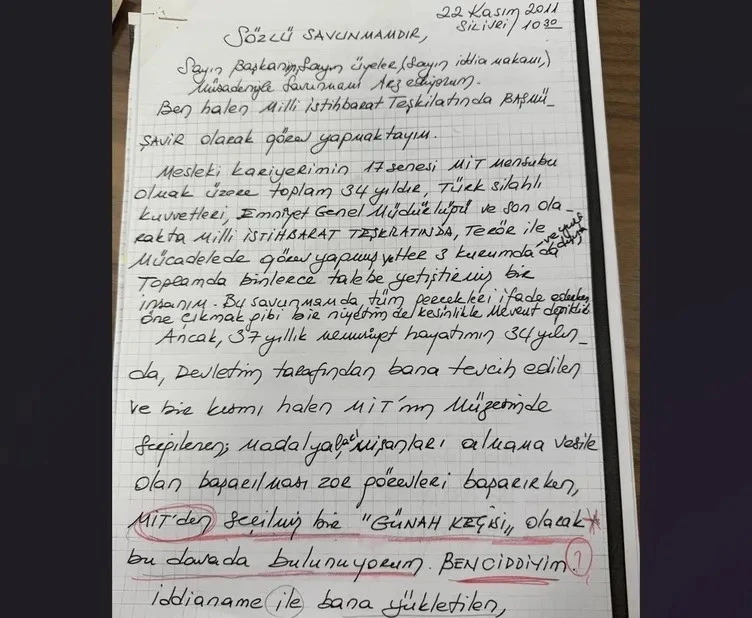 22 KASIM 2011
SİLİVRİ / 10 30
SÖZLÜ SAVUNMAMDIR,
Sayın Başkanım, Sayın üyeler, (Sayın iddia makamı,)
Müsadenizle Savunmamı Arz ediyorum.
Ben halen Milli İstihbarat Teşkilatında BAŞMÜ_
ŞAVİR olarak görev yapmaktayım.
Mesleki kariyerimin 17 senesi MİT mensubu
olmak üzere toplam 34 yıldır, Türk silahlı
kuvvetleri, Emniyet Genel Müdürlüğü ve son ola_
rakta Milli İSTİHBARAT TEŞKİLATINDA, TERÖR ile
Mücadelede görev yapmış 3 kurumda da
Toplamda binlerce talebe yetiştirmiş bir
insanım. Bu savunmamda, tüm gerçekleri ifade ederken
öne çıkmak gibi bir niyetim de kesinlikle Mevcut değildir.
Ancak, 37 yıllık memuriyet hayatımın 34 yılın_
da, Devletim tarafından bana tevcih edilen
ve bir kısmı halen MİT'nın Müzesinde
sergilenen; madalyaları, nişanları almama vesile
olan başarılması zor görevleri başarırken,
MİT'den seçilmiş bir "GÜNAH KEÇİSİ" olarak *
bu davada bulunuyorum. BEN CİDDİYİM. ?
iddianame ile bana yükletilen,